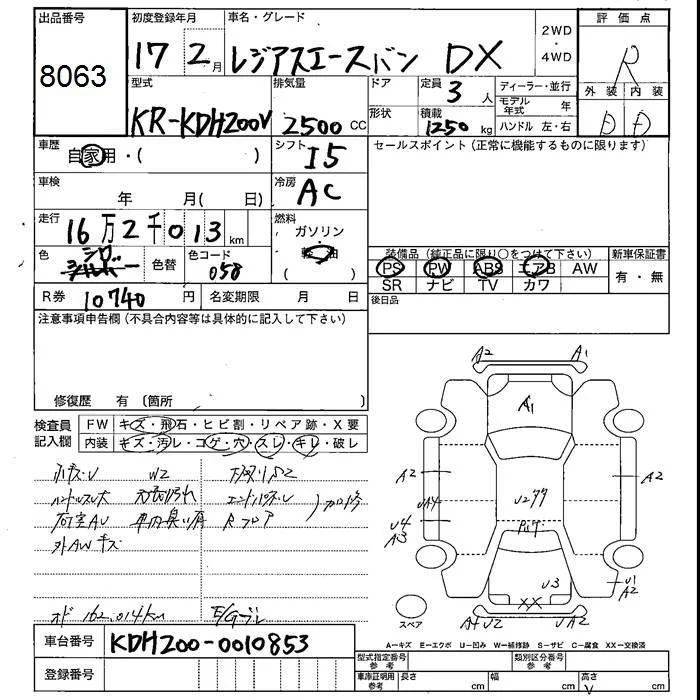 出品番号 初度登録年月 車名・グレード 評価点
8063 17 2月 レジアスエースバン DX 2WD・4WD R
型式 排気量 ドア 定員 3人 ディーラー・並行 外装 内装
モデル年式 年
KR-KDH200V 2500 CC 形状 積載 1250 kg ハンドル 左・右 D D
車歴 自家用・( ) シフト I5 セールスポイント(正常に機能するものに限ります)
車検 年 月( 日) 冷房 AC
走行 16万2千013 km 燃料 ガソリン
軽油
( )
色 シロ シルバー 色替 色コード 058
装備品(純正品に限り○をつけて下さい) 新車保証書
PS PW ABS エアB AW 有・無
SR ナビ TV カワ
R券 10740円 名変期限 月 日 後日品
注意事項申告欄(不具合内容等は具体的に記入して下さい)
修復歴 有 〔箇所 〕
検査員記入欄 FW キズ・飛石・ヒビ割・リペア跡・X要
内装 キズ・汚レ・コゲ・穴・スレ・キレ・破レ
A2 A1
A1
A2 UA4 U4 A3
U277
A2
U3
XX
U1 A2
A4 U2 UA2
ボデーU W2
ハンドルスレ大 天張り汚れ エンドパネルU 加修
荷室AU 車内臭い有 Rフロア
外AWキズ
オド 162,014km E/Gオイル
スペア
A=キズ E=エクボ U=凹み W=補修跡 S=サビ C=腐食 XX=交換済
車台番号 KDH200-0010853
登録番号
型式指定番号 参考 類別区分番号 参考
車庫証明用 参考 長さ cm 幅 cm 高さ cm